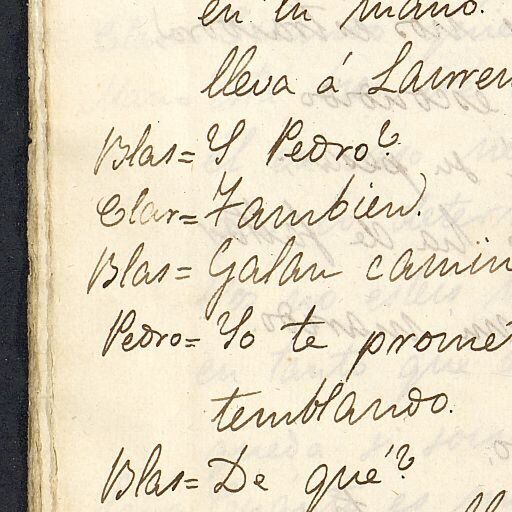 en tu mano.
lleva á Lauren
Blas = Y Pedro?
Clar = Tambien.
Blas = Galan camin
Pedro = Yo te promé
temblando.
Blas = De qué?